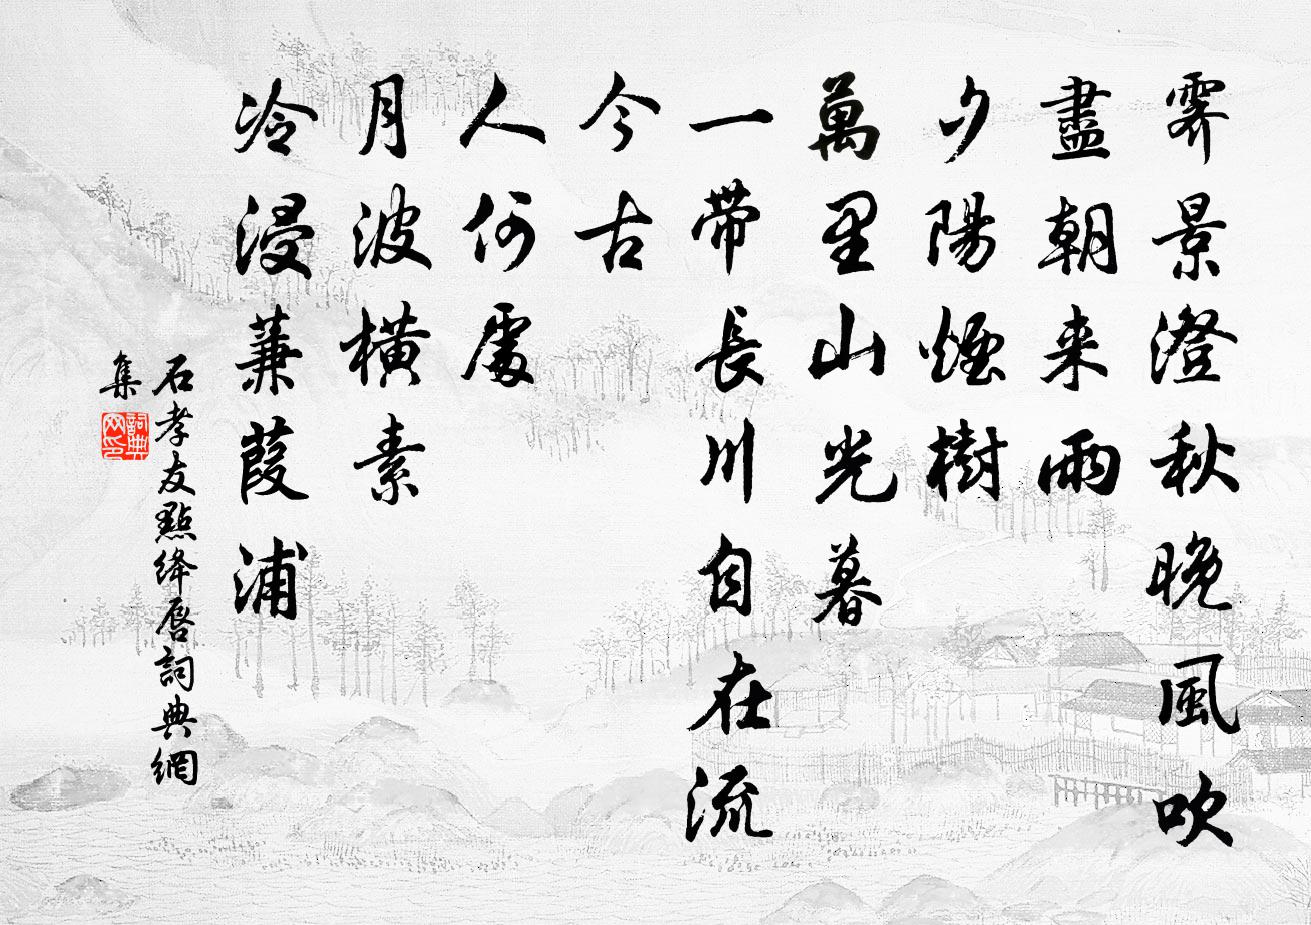 霽景澄秋晚風吹
盡朝來雨
夕陽煙樹
萬里山光暮
一帶長川自在流
今古
人何處
月波橫素
冷浸蒹葭浦
石孝友點絳唇詞典網
集
詞典
网印